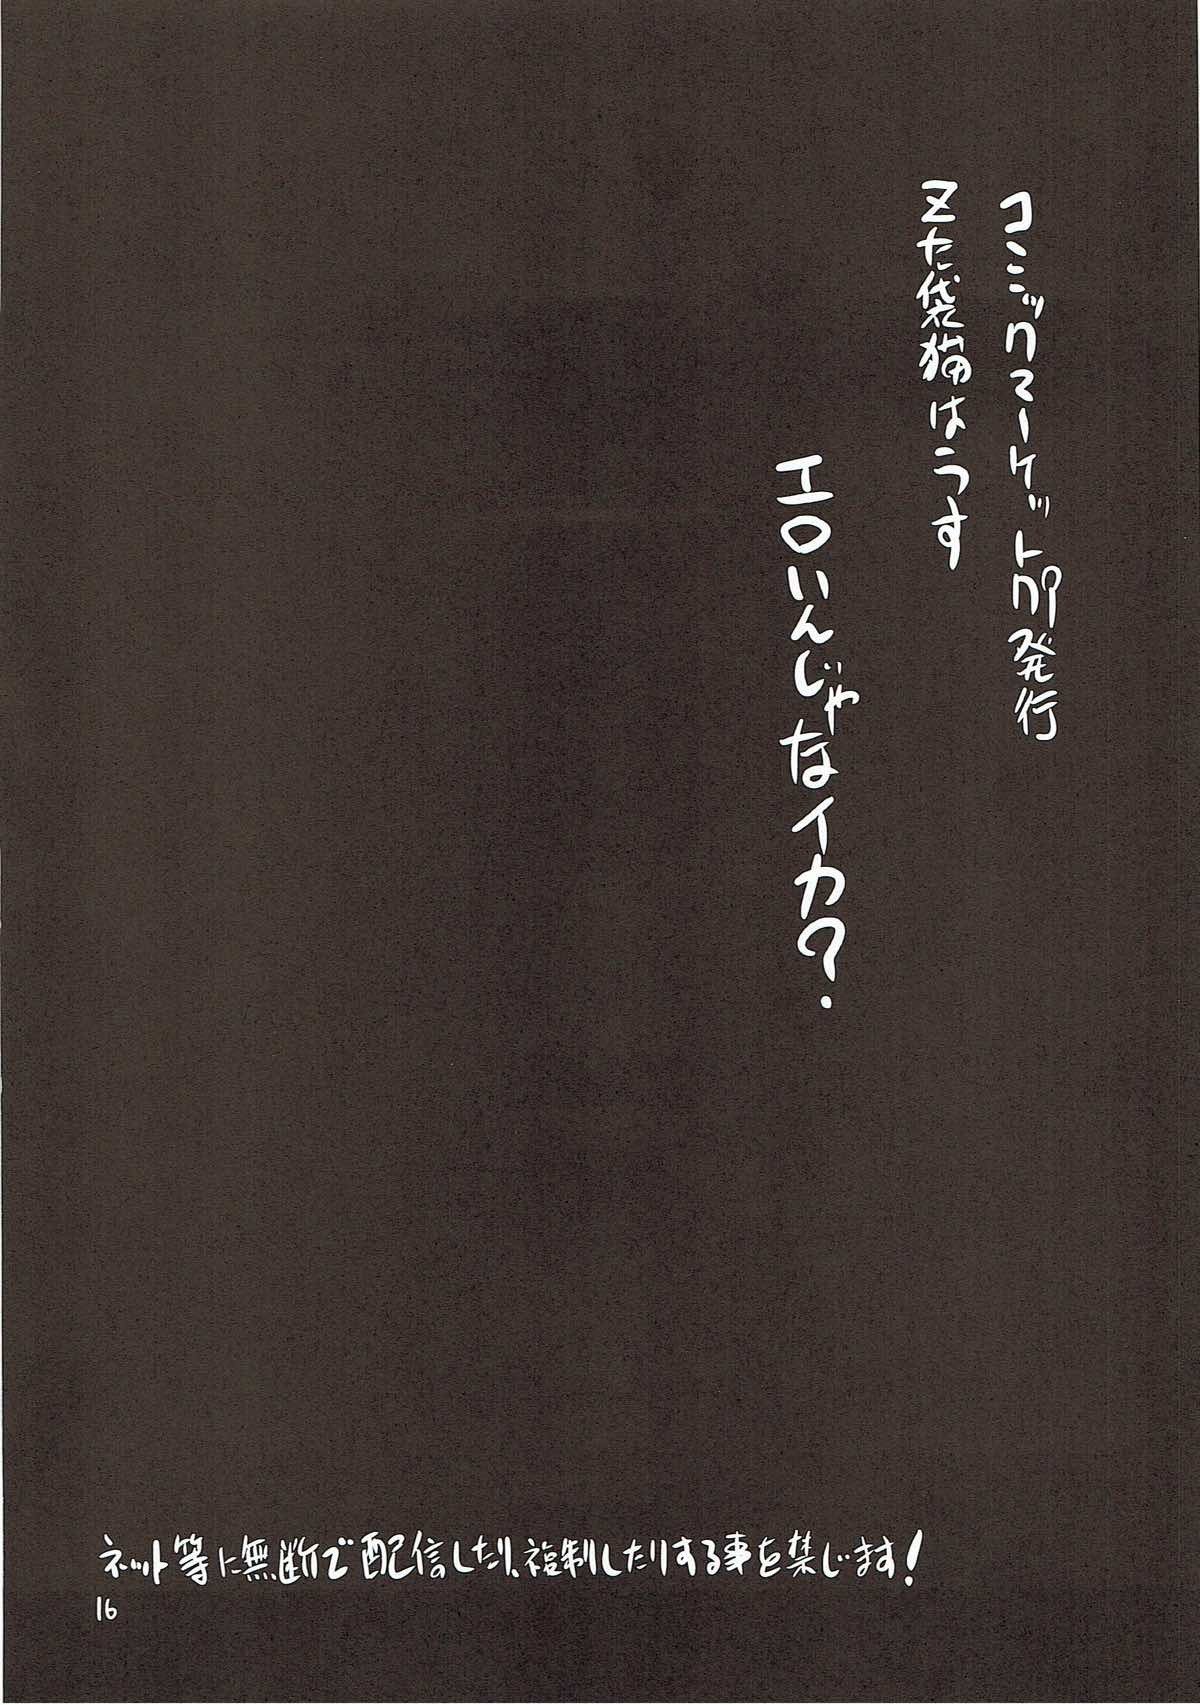 コミックマーケット79発行
Zた袋猫はうす
エロいんじゃなイカ？
ネット等に無断で配信したり、複制したりする事を禁じます！
16